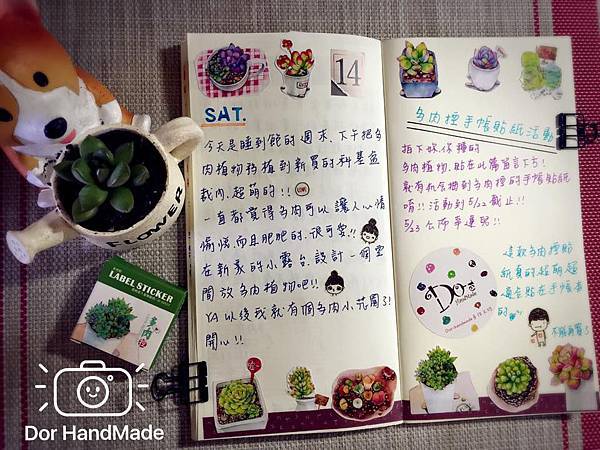 14
SAT.
今天是睡到飽的週末、下午把多
肉植物移植到新買的科基盆
栽內、超萌的!!
一直都覺得多肉可以讓人心情
愉悅、而且肥肥的、很可愛!!
在新家的小露台、設計一個空
間放多肉植物吧!!
YA 以後我就有個多肉小花園了!
開心!!
多肉控手帳貼紙活動
拍下妳/你種的
多肉植物、貼在此篇留言下方!
就有機會抽到多肉控的手帳貼紙
唷!!活動到5/22截止!!
5/23公佈幸運兒!!
這款多肉控貼
紙真的超萌超
適合貼在手帳本
的
不能再買了!
Do芸
HandMade
FLOWER
LABEL STICKER
Dor HandMade